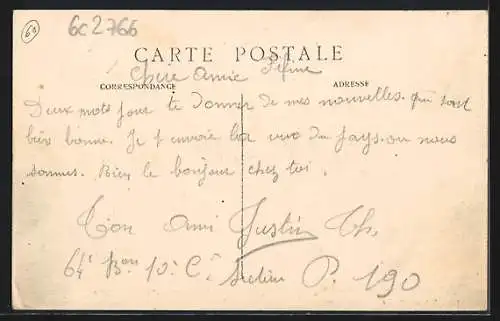 60
6c2766
CARTE POSTALE
Chère Amie Fifine
CORRESPONDANCE
ADRESSE
Deux mots pour te donner de mes nouvelles. qui sont
bien bonne. Je t envoie la vue du pays ou nous
sommes. Bien le bonjour chez toi.
Ton Ami Justin Th.
64e Bon 10e Cie P. 190